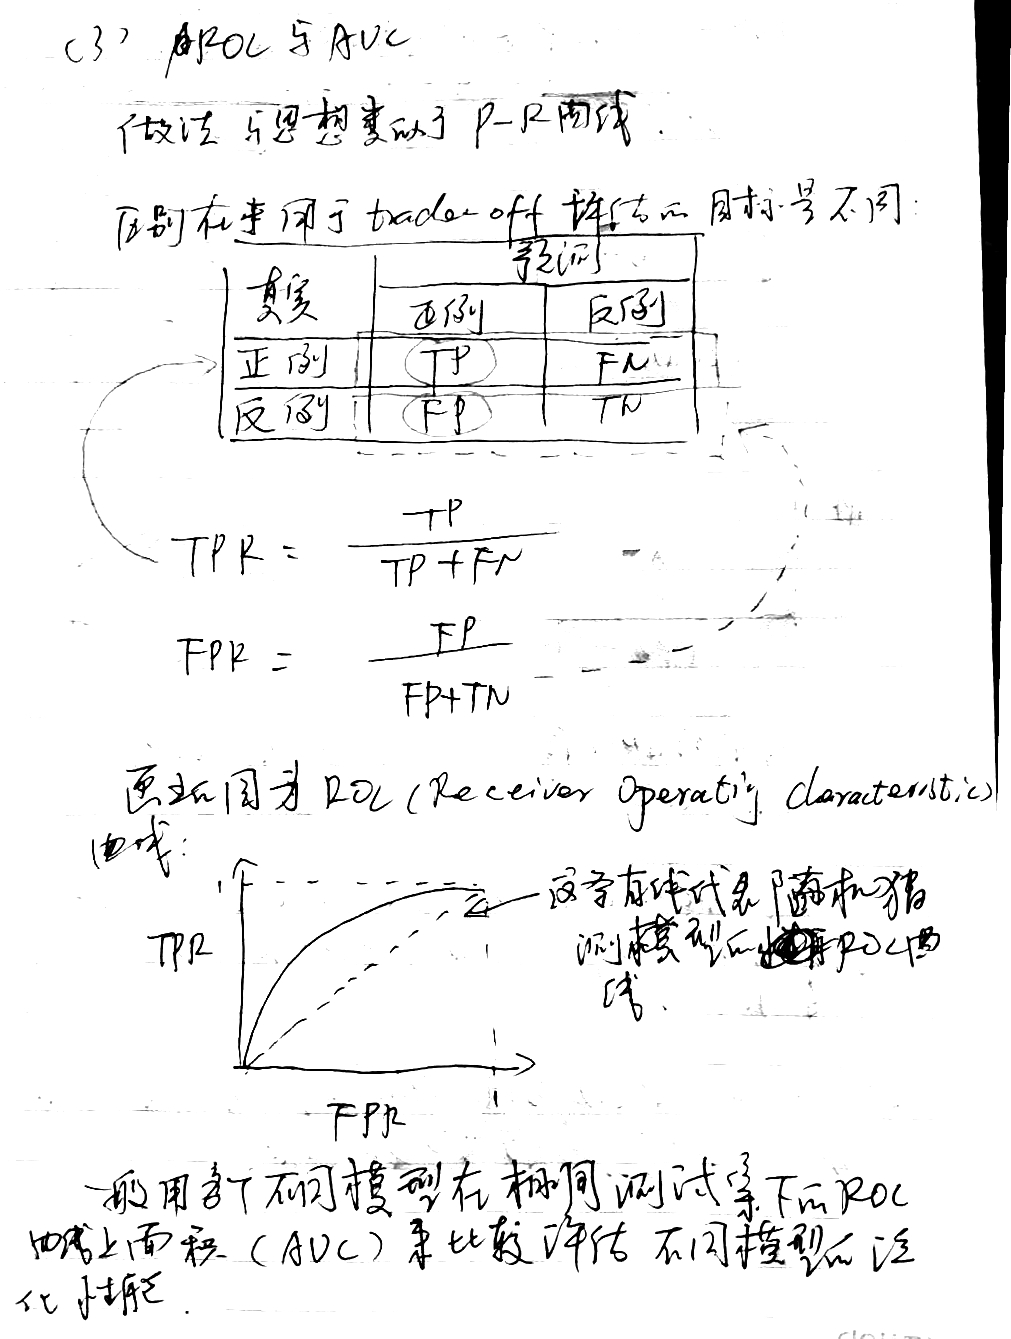 (3) ROC与AUC
做法与思想类似于P-R曲线.
区别在来用于trade-off 评估的目标是不同:
真实 预测
正例 反例
正例 TP FN
反例 FP TN
TPR = TP / TP+FN
FPR = FP / FP+TN
画出的图为ROC(Receiver Operating characteristic)
曲线:
1
TPR
这条直线代表随机猜
测模型的ROC曲
线.
1
FPR
一般用各个不同模型在相同测试集下的ROC
曲线上面积(AUC)来比较评估不同模型的泛
化性能.